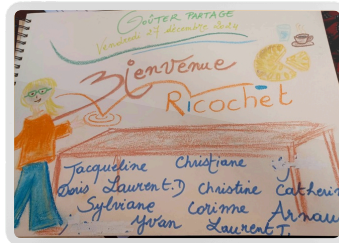 GOÛTER PARTAGE
Vendredi 27 décembre 2024
Bienvenue
Ricochet
Jacqueline Christiane
Doris Laurent.D Christine Catherin
Sylviane Corinne Arnau
Yvan Laurent T.